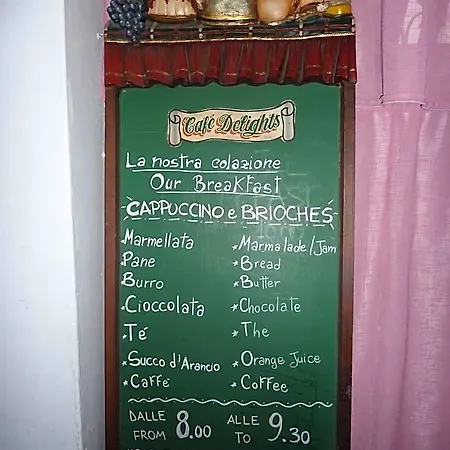 Café Delights
La nostra colazione
Our Breakfast
-CAPPUCCINO e BRIOCHES-
Marmellata *Marmalade/Jam
Pane *Bread
Burro *Butter
Cioccolata *Chocolate
*Té *The
*Succo d'Arancio *Orange Juice
*Caffé *Coffee
DALLE 8.00 ALLE 9.30
FROM TO